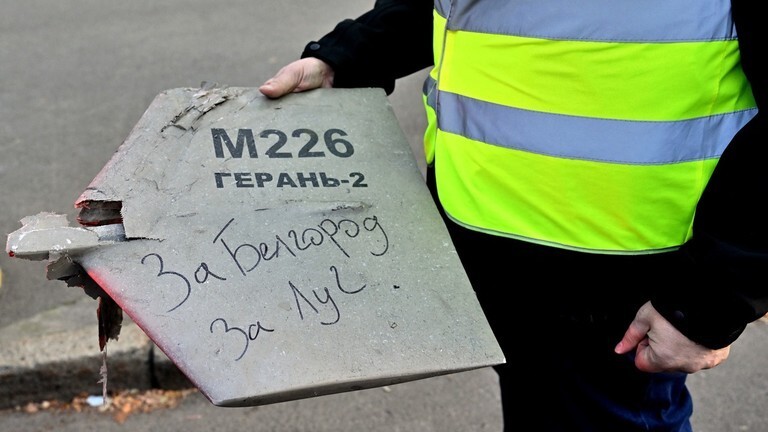 М226
ГЕРАНЬ-2
За Белгород
за Луг